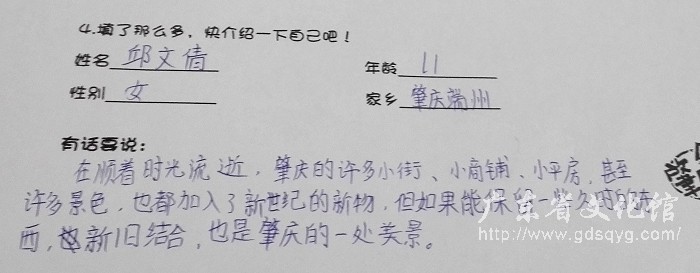 4.填了那么多，快介绍一下自己吧！
姓名 邱文倩 年龄 11
性别 女 家乡 肇庆端州
有话要说：
在顺着时光流逝，肇庆的许多小街、小商铺、小平房，甚至
许多景色，也都加入了新世纪的新物，但如果能保留一些久时的东
西，新旧结合，也是肇庆的一处美景。
广东省文化馆
http://www.gdsqyg.com/